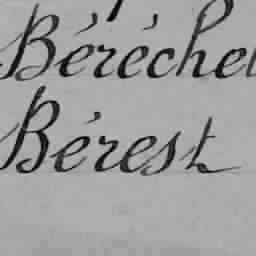 Béréchet
Bérest